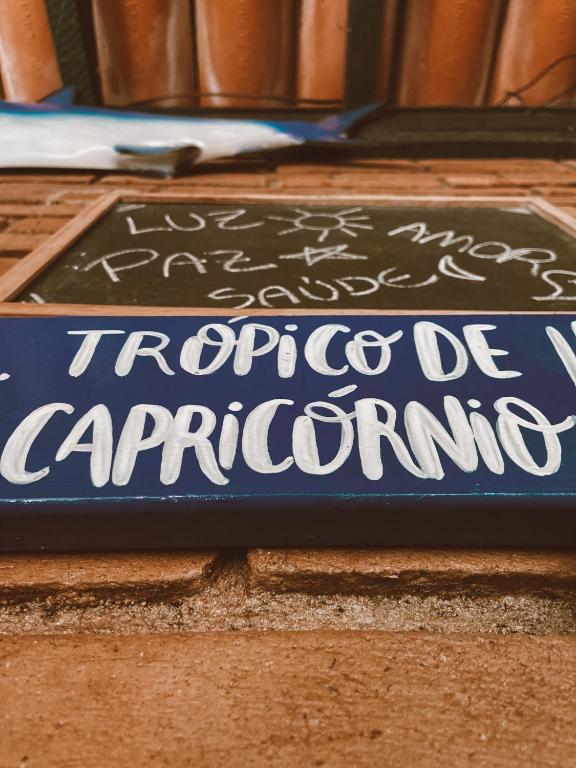 LUZ AMOR
PAZ
SAÚDE
TRÓPICO DE
CAPRICÓRNIO